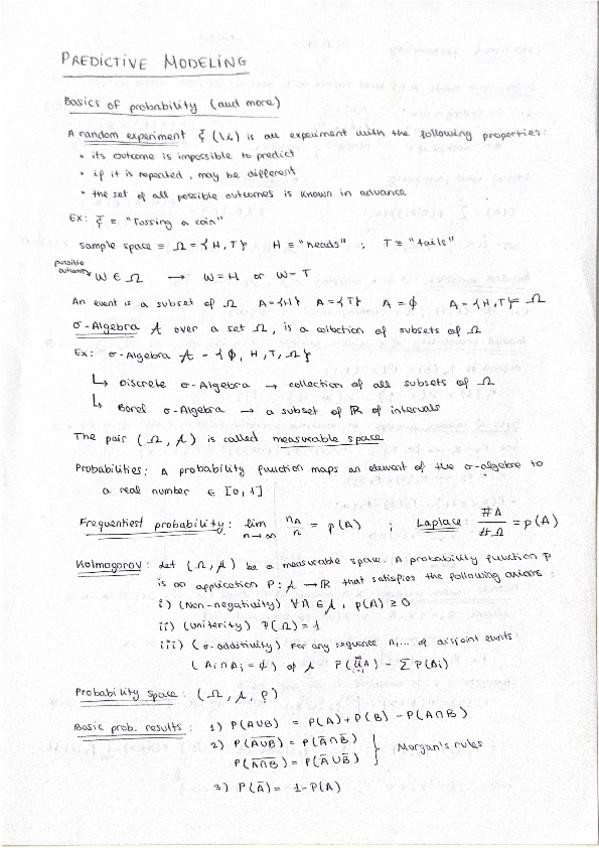 PREDICTIVE MODELING
Basics of probability (and more)
A random experiment ξ (\xi) is an experiment with the following properties:
• its outcome is impossible to predict
• if it is repeated, may be different
• the set of all possible outcomes is known in advance
Ex: ξ ≡ "Tossing a coin"
sample space ≡ Ω = {H, T} H ≡ "heads" ; T ≡ "tails"
possible outcomes ω ∈ Ω → ω = H or ω = T
An event is a subset of Ω A = {H} A = {T} A = ϕ A = {H, T} = Ω
σ-Algebra A over a set Ω, is a collection of subsets of Ω
Ex: σ-Algebra A = {ϕ, H, T, Ω}
↳ Discrete σ-Algebra → collection of all subsets of Ω
↳ Borel σ-Algebra → a subset of ℝ of intervals
The pair (Ω, A) is called measurable space
Probabilities: A probability function maps an element of the σ-algebra to
a real number ∈ [0,1]
Frequentist probability: lim n→∞ nA/n = p(A) ; Laplace: #A/#Ω = p(A)
Kolmogorov: Let (Ω, A) be a measurable space. A probability function P
is an application P: A → ℝ that satisfies the following axioms:
i) (Non-negativity) ∀A ∈ A, p(A) ≥ 0
ii) (Uniterity) P(Ω) = 1
iii) (σ-additivity) For any sequence A1... of disjoint events
(Ai ∩ Aj = ϕ) of A P(∪A) = ΣP(Ai)
Probability space: (Ω, A, P)
Basic prob. results: 1) P(A∪B) = P(A) + P(B) - P(A∩B)
2) P(A̅∪̅B̅) = P(A̅∩B̅)
P(A̅∩̅B̅) = P(A̅∪B̅) } Morgan's rules
3) P(A̅) = 1-P(A)